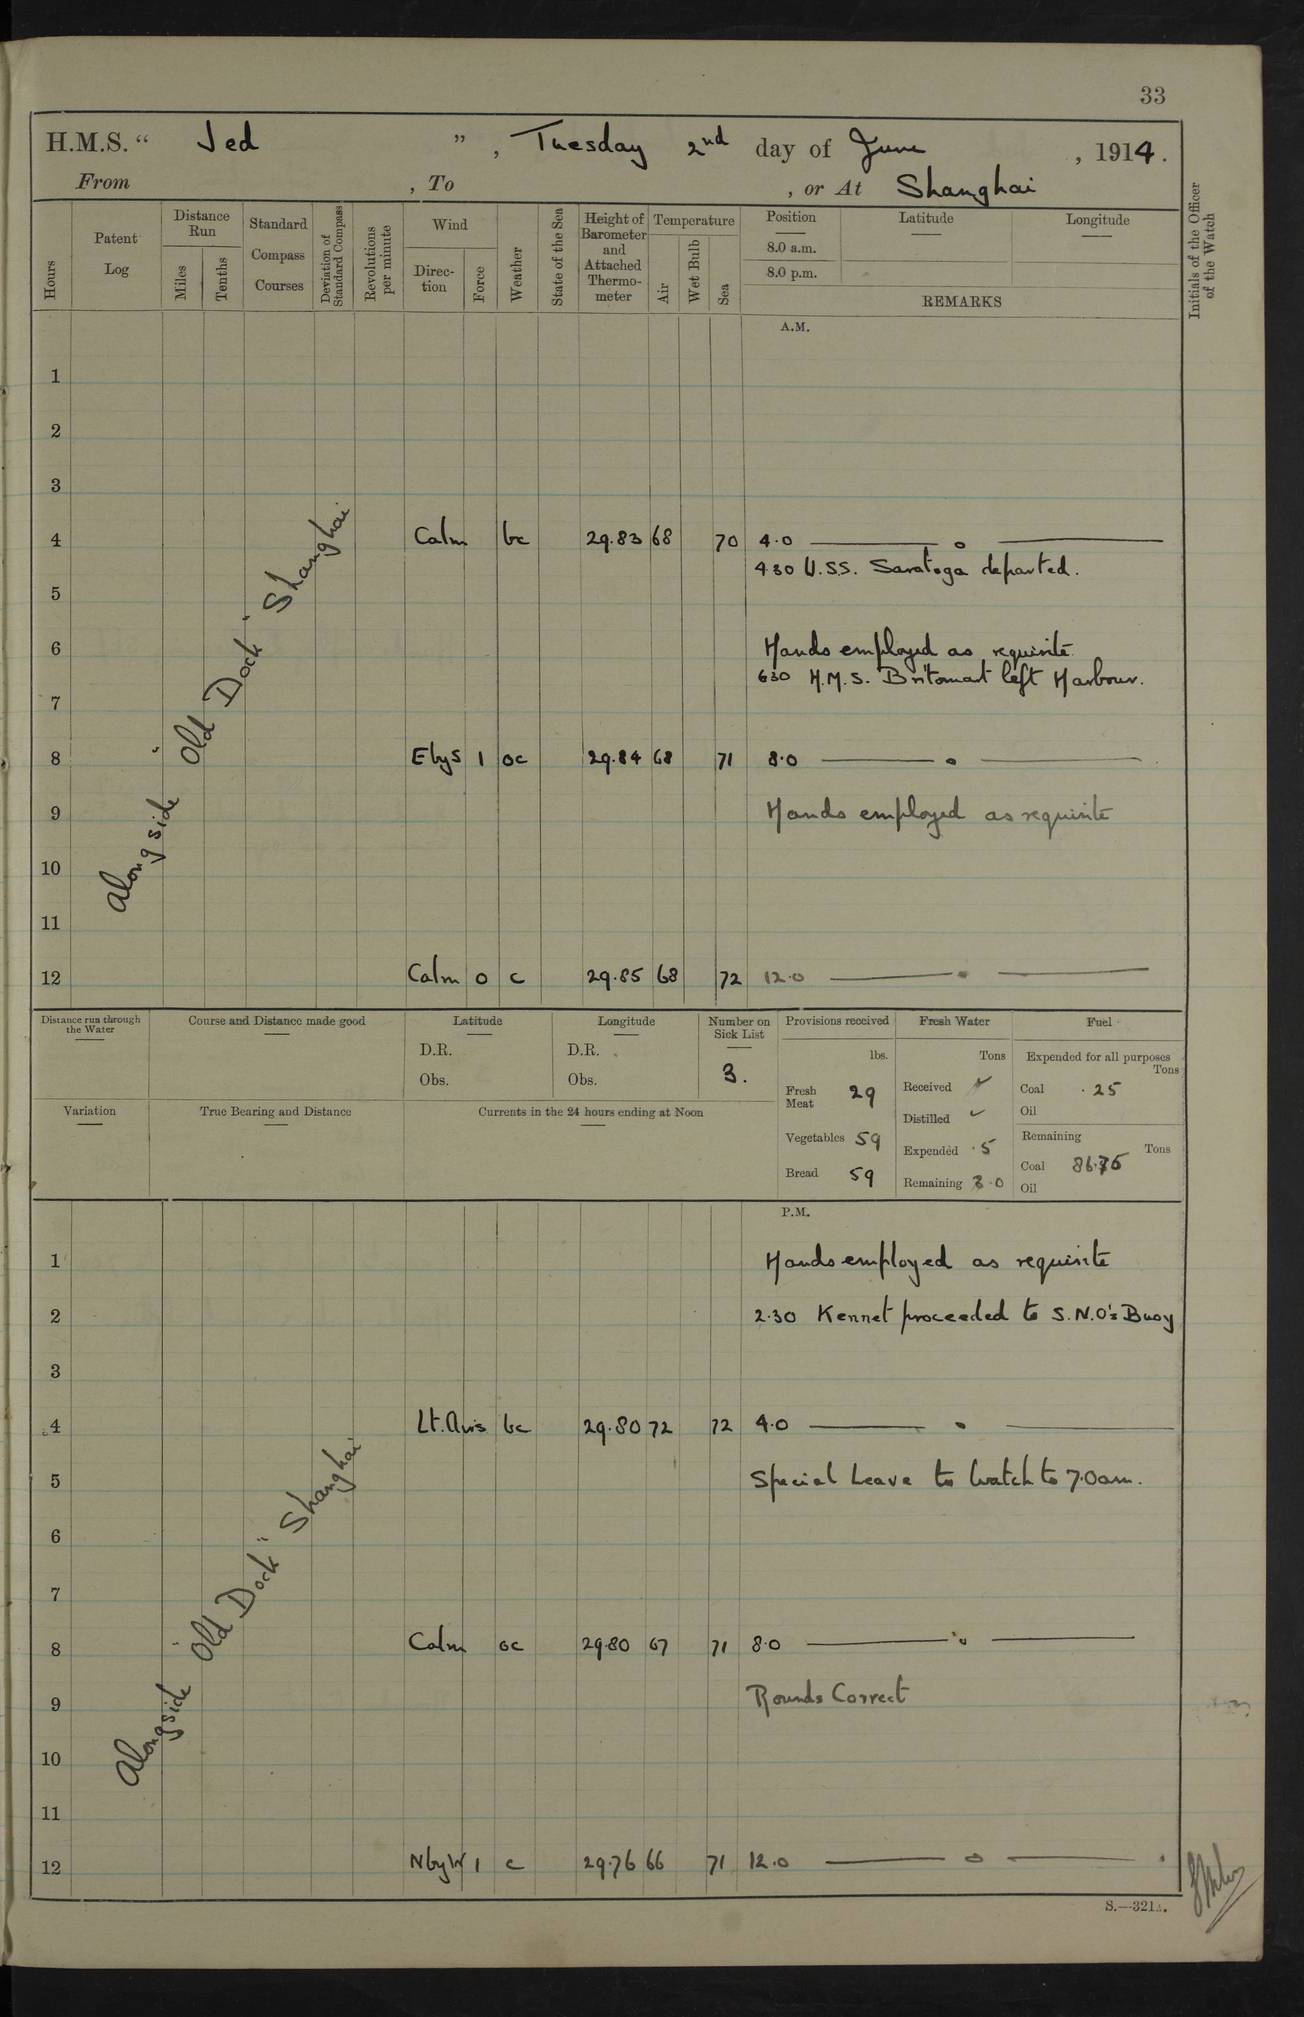 33
H.M.S. “ Jed ” , Tuesday 2nd day of June , 1914.
From , To , or At Shanghai
Hours
Patent Log
Distance Run
Miles
Tenths
Standard Compass Courses
Deviation of Standard Compass
Revolutions per minute
Wind
Direc-tion
Force
Weather
State of the Sea
Height of Barometer and Attached Thermo-meter
Temperature
Air
Wet Bulb
Sea
Position
8.0 a.m.
8.0 p.m.
Latitude
Longitude
REMARKS
Initials of the Officer of the Watch
A.M.
1
2
3
4 Calm bc 29.83 68 70 4.0
4.30 U.S.S. Saratoga departed.
5
6 Hands employed as requisite
6.30 H.M.S. Britomart left Harbour.
7
8 E by S 1 oc 29.84 68 71 8.0
9 Hands employed as requisite
10
11
12 Calm 0 c 29.85 68 72 12.0
Alongside "Old Dock" Shanghai
Distance run through the Water
Course and Distance made good
Latitude
D.R.
Obs.
Longitude
D.R.
Obs.
Number on Sick List
3.
Variation
True Bearing and Distance
Currents in the 24 hours ending at Noon
Provisions received
lbs.
Fresh Meat 29
Vegetables 59
Bread 59
Fresh Water
Tons
Received ✓
Distilled ✓
Expended .5
Remaining 3.0
Fuel
Expended for all purposes
Tons
Coal .25
Oil
Remaining
Tons
Coal
Oil
P.M.
1 Hands employed as requisite
2 2.30 Kennet proceeded to S.N.O's Buoy
3
4 Lt. Airs bc 29.80 72 72 4.0
5 Special Leave to Watch to 7.0 am.
6
7
8 Calm oc 29.80 67 71 8.0
9 Rounds Correct
10
11
12 N by W 1 c 29.76 66 71 12.0
Alongside "Old Dock" Shanghai
S.—321A.